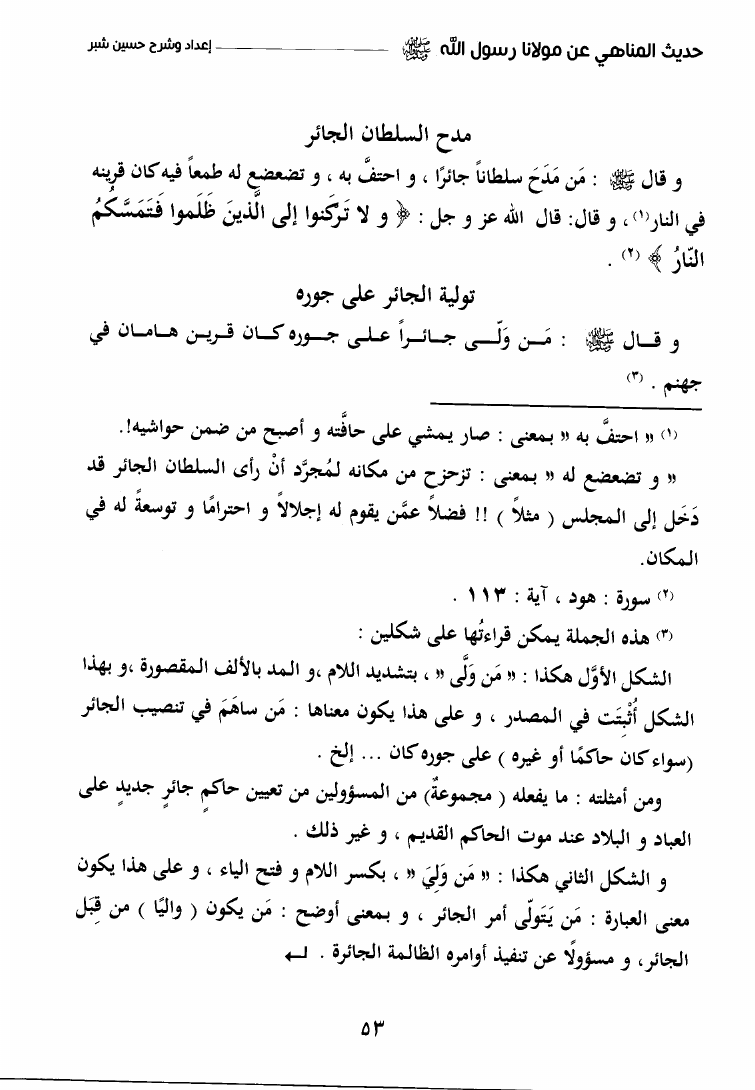 حديث المناهي عن مولانا رسول الله ﷺ ـــــــــــــــ إعداد وشرح حسين شبر
مدح السلطان الجائر
و قال ﷺ : مَن مَدَحَ سلطاناً جائرًا ، و احتفَّ به ، و تضعضع له طمعاً فيه كان قرينه
في النار(١)، و قال: قال الله عز و جل : ﴿ و لا تَركَنوا إلى الَّذينَ ظَلَموا فَتَمَسَّكُمُ
النّارُ ﴾ (٢) .
تولية الجائر على جوره
و قـال ﷺ : مَـن وَلّـى جـائـراً عـلـى جـوره كـان قـريـن هـامـان في
جهنم . (٣)
(١) « احتفَّ به » بمعنى : صار يمشي على حافَّته و أصبح من ضمن حواشيه!.
« و تضعضع له » بمعنى : تزحزح من مكانه لمُجرَّد أنْ رأى السلطان الجائر قد
دَخَل إلى المجلس ( مثلاً ) !! فضلاً عمَّن يقوم له إجلالاً و احترامًا و توسعةً له في
المكان.
(٢) سورة : هود ، آية : ١١٣ .
(٣) هذه الجملة يمكن قراءتُها على شكلين :
الشكل الأوَّل هكذا : « مَن وَلَّى » ، بتشديد اللام ،و المد بالألف المقصورة ،و بهذا
الشكل أُثْبِتَت في المصدر ، و على هذا يكون معناها : مَن ساهَمَ في تنصيب الجائر
(سواء كان حاكمًا أو غيره ) على جوره كان ... إلخ .
ومن أمثلته : ما يفعله ( مجموعةٌ) من المسؤولين من تعيين حاكمٍ جائرٍ جديدٍ على
العباد و البلاد عند موت الحاكم القديم ، و غير ذلك .
و الشكل الثاني هكذا : « مَن وَلِيَ » ، بكسر اللام و فتح الياء ، و على هذا يكون
معنى العبارة : مَن يَتَولّى أمر الجائر ، و بمعنى أوضح : مَن يكون ( واليًا ) من قِبَل
الجائر، و مسؤولًا عن تنفيذ أوامره الظالمة الجائرة . ↵
٥٣